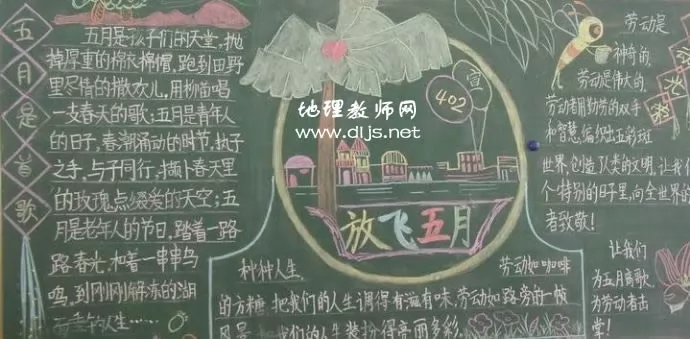 五月是首歌
五月是孩子们的天堂,抛
掉厚重的棉衣棉帽,跑到田野
里尽情的撒欢儿,用柳笛唱
支春天的歌;五月是青年人
的日子,春潮涌动的时节,执子
之手,与子同行,撷卜春天里
的玫瑰点缀爱的天空;五
月是老年人的节日,踏着一路
路春光,和着一串串鸟
鸣,到刚刚解冻的湖
人生……
宣
402
地理教师网
www.dljs.net
放飞五月
种种人生,
劳动如咖啡
的方糖,把我们的人生调得有滋有味,劳动如路旁的一枝
风景,把我们的人生装扮得亮丽多彩.
劳动是
神奇的,
劳动是伟大的,
劳动者用勤劳的双手
和智慧,编织出五彩斑
世界,创造了人类的文明,让我们
个特别的日子里,向全世界的
者致敬!
让我们
为五月高歌,
为劳动者击
掌!